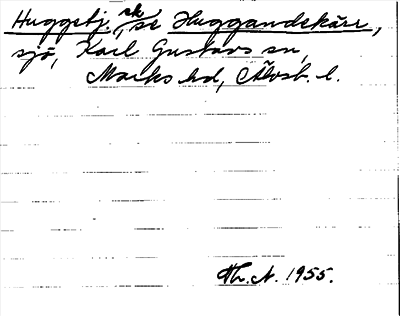 Huggebj. sk, se Huggandskärr,
sjö, Karl Gustavs sn,
Marks hd, Älvsb. l.
Th. N. 1955.